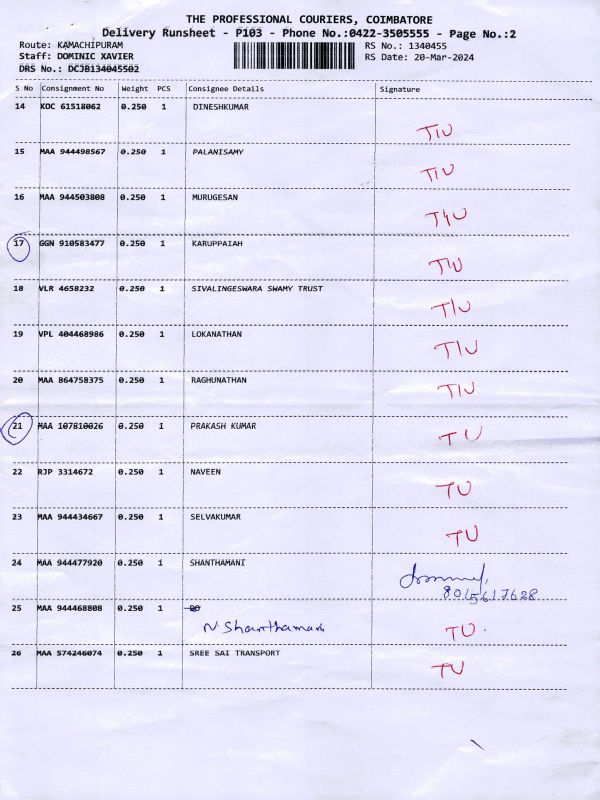 THE PROFESSIONAL COURIERS, COIMBATORE
Delivery Runsheet - P103 - Phone No.:0422-3505555 - Page No.:2
Route: KAMACHIPURAM RS No.: 1340455
Staff: DOMINIC XAVIER RS Date: 20-Mar-2024
DRS No.: DCJB134045502
S No Consignment No Weight PCS Consignee Details Signature
14 KOC 61518062 0.250 1 DINESHKUMAR
TIU
15 MAA 944498567 0.250 1 PALANISAMY
TIU
16 MAA 944503808 0.250 1 MURUGESAN
TIU
17 GGN 910583477 0.250 1 KARUPPAIAH
TIU
18 VLR 4658232 0.250 1 SIVALINGESWARA SWAMY TRUST
TIU
19 VPL 404468986 0.250 1 LOKANATHAN
TIU
20 MAA 864758375 0.250 1 RAGHUNATHAN
TIU
21 MAA 107810026 0.250 1 PRAKASH KUMAR
TU
22 RJP 3314672 0.250 1 NAVEEN
TU
23 MAA 944434667 0.250 1 SELVAKUMAR
TU
24 MAA 944477920 0.250 1 SHANTHAMANI
8015617628
25 MAA 944468808 0.250 1
N. Shanthamani TU.
26 MAA 574246074 0.250 1 SREE SAI TRANSPORT
TU